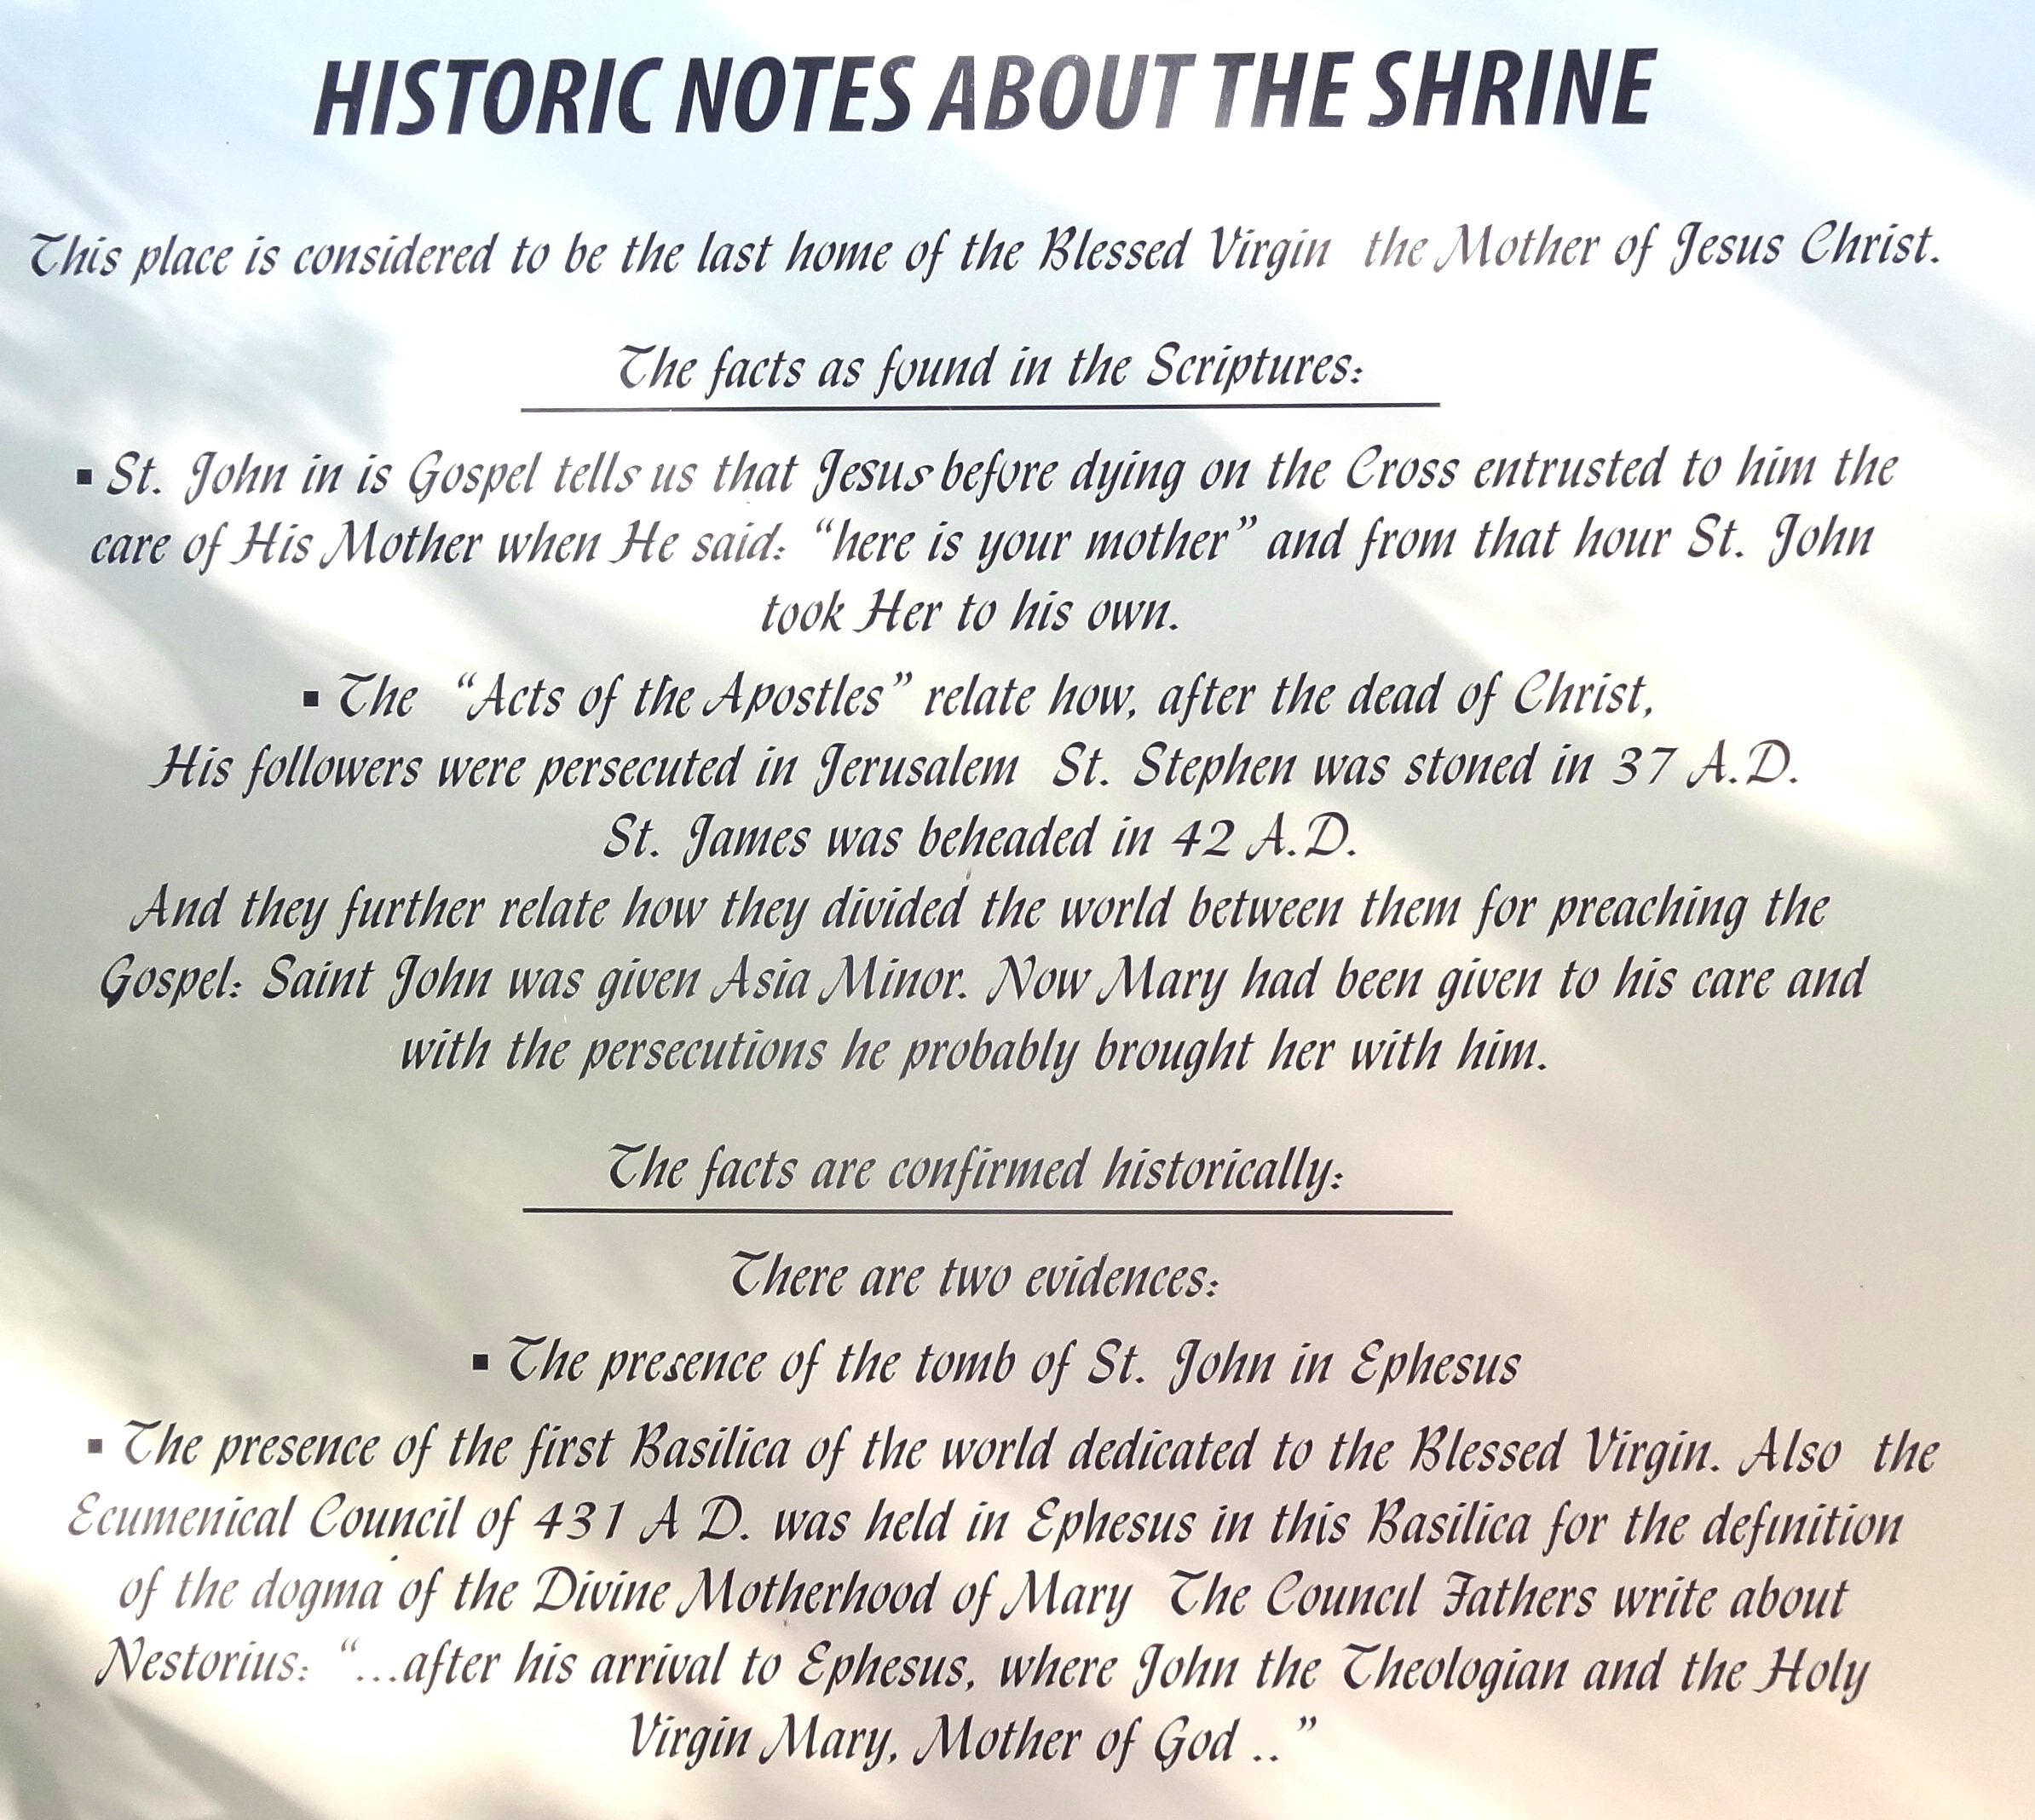 HISTORIC NOTES ABOUT THE SHRINE
This place is considered to be the last home of the Blessed Virgin the Mother of Jesus Christ.
The facts as found in the Scriptures:
▪ St. John in is Gospel tells us that Jesus before dying on the Cross entrusted to him the
care of His Mother when He said: “here is your mother” and from that hour St. John
took Her to his own.
▪ The “Acts of the Apostles” relate how, after the dead of Christ,
His followers were persecuted in Jerusalem St. Stephen was stoned in 37 A.D.
St. James was beheaded in 42 A.D.
And they further relate how they divided the world between them for preaching the
Gospel: Saint John was given Asia Minor. Now Mary had been given to his care and
with the persecutions he probably brought her with him.
The facts are confirmed historically:
There are two evidences:
▪ The presence of the tomb of St. John in Ephesus
▪ The presence of the first Basilica of the world dedicated to the Blessed Virgin. Also the
Ecumenical Council of 431 A D. was held in Ephesus in this Basilica for the definition
of the dogma of the Divine Motherhood of Mary The Council Fathers write about
Nestorius: “...after his arrival to Ephesus, where John the Theologian and the Holy
Virgin Mary, Mother of God ..”